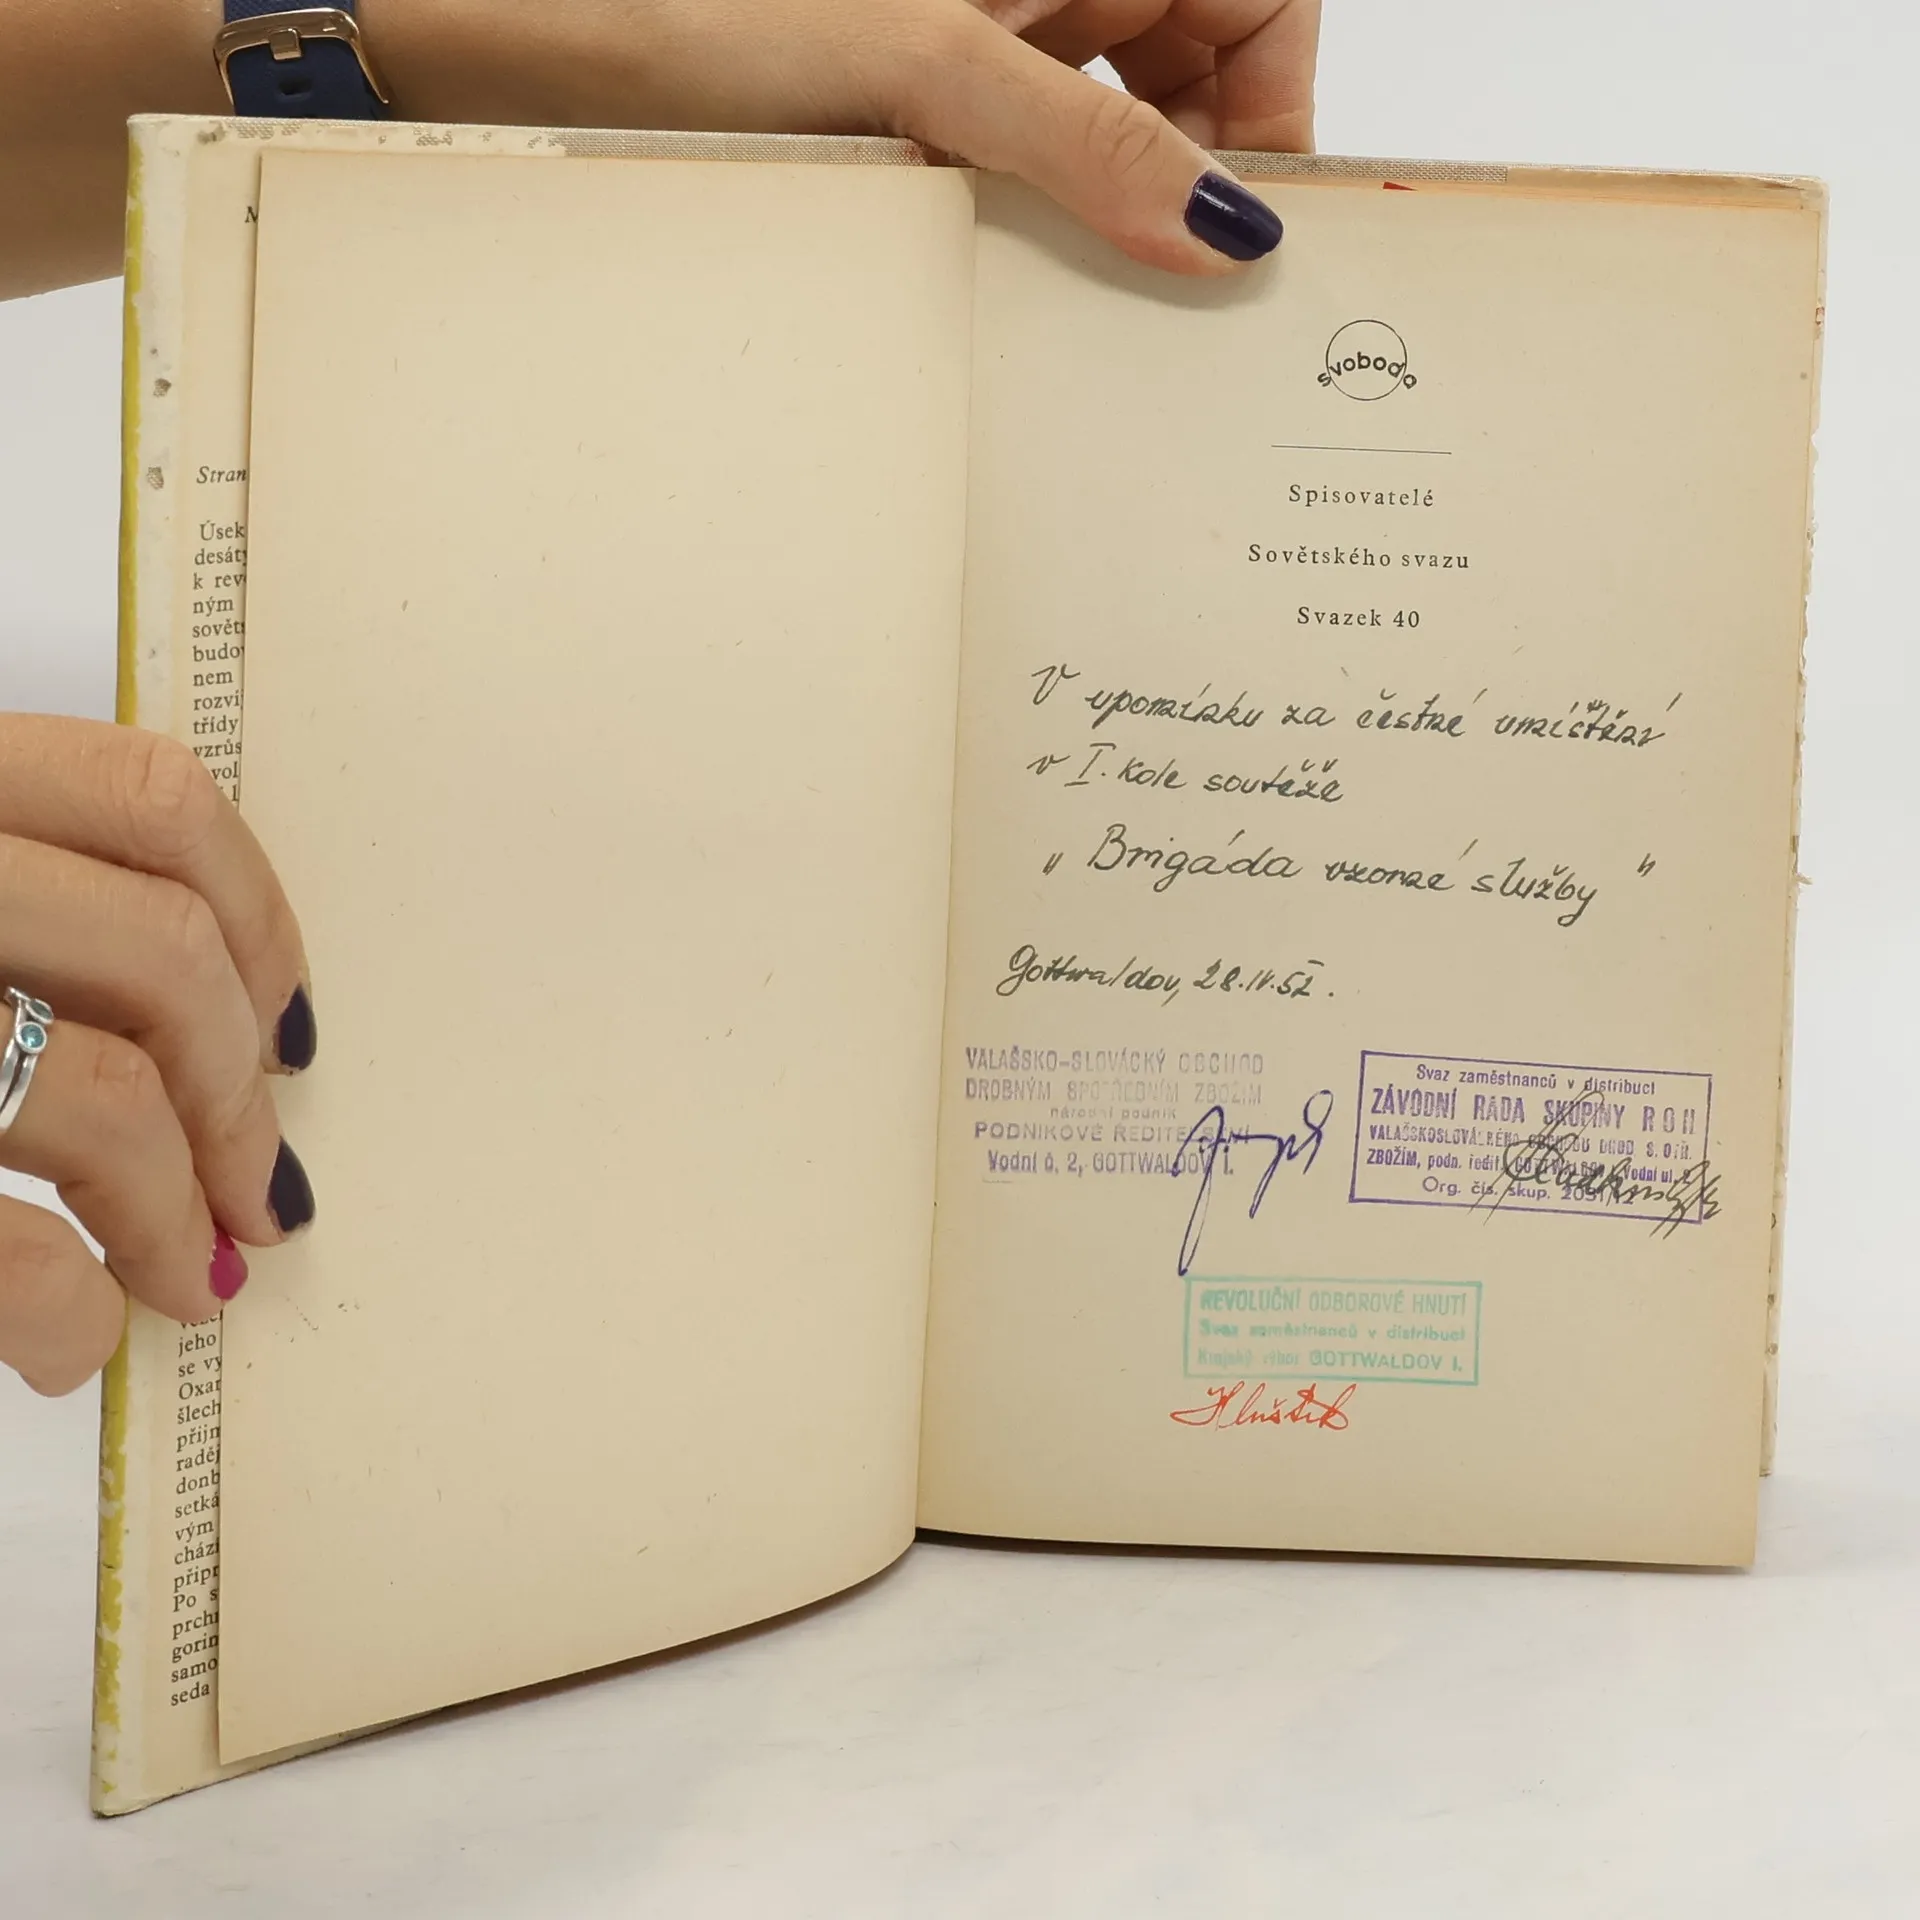 M
Stran
Úsek
desát
k rev
ným
sovět
budo
nem
rozvij
třídy
vzrůs
vol
jeho
se vy
Oxar
šlech
přijn
raděj
donb
setká
vým
cház
připr
Po s
prch
gorin
samo
seda
svoboda
Spisovatelé
Sovětského svazu
Svazek 40
V upomínku za čestné umístění
v I. kole soutěže
„ Brigáda vzorné služby "
Gottwaldov, 28.IV.52.
VALAŠSKO-SLOVÁCKÝ OBCHOD
DROBNÝM SPOTŘEBNÍM ZBOŽÍM
národní podnik
PODNIKOVÉ ŘEDITELSTVÍ
Vodní č. 2, GOTTWALDOV I.
Svaz zaměstnanců v distribuci
ZÁVODNÍ RADA SKUPINY ROH
VALAŠSKOSLOVÁCKÉHO OBCHODU DROB. S. OTŘ.
ZBOŽÍM, podn. ředit. GOTTWALDOV I, Vodní ul. 2
Org. čís. skup. 2051/12
REVOLUČNÍ ODBOROVÉ HNUTÍ
Svaz zaměstnanců v distribuci
Krajský výbor GOTTWALDOV I.
Hluštík